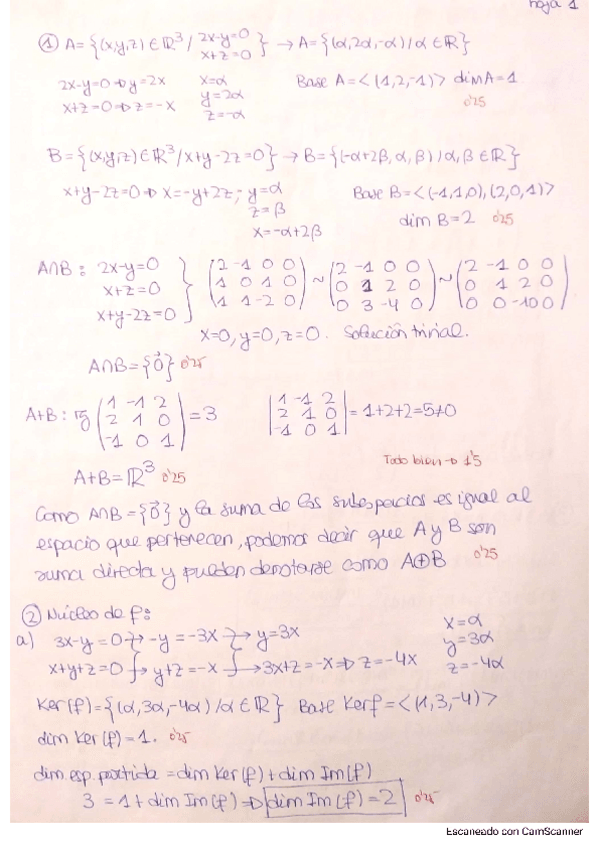 hoja 1
① A = {(x,y,z) ∈ ℝ³ / 2x-y=0 x+z=0} → A = {(α, 2α, -α) / α ∈ ℝ}
2x-y=0 ⇒ y=2x x=α Base A = <(1,2,-1)> dim A = 1
x+z=0 ⇒ z=-x y=2α 0'25
z=-α
B = {(x,y,z) ∈ ℝ³ / x+y-2z=0} → B = {(-α+2β, α, β) / α, β ∈ ℝ}
x+y-2z=0 ⇒ x=-y+2z; y=α Base B = <(-1,1,0), (2,0,1)>
z=β dim B = 2 0'25
x=-α+2β
A∩B: 2x-y=0 (2 -1 0 0) (2 -1 0 0) (2 -1 0 0)
x+z=0 } (1 0 1 0) ~ (0 1 2 0) ~ (0 1 2 0)
x+y-2z=0 (1 1 -2 0) (0 3 -4 0) (0 0 -10 0)
x=0, y=0, z=0. Solución trivial.
A∩B = {0⃗} 0'25
(1 -1 2) |1 -1 2|
A+B: rg (2 1 0) = 3 |2 1 0| = 1+2+2=5≠0
(-1 0 1) |-1 0 1|
Todo bien → 1'5
A+B = ℝ³ 0'25
Como A∩B = {0⃗} y la suma de los subespacios es igual al
espacio que pertenecen, podemos decir que A y B son
suma directa y pueden denotarse como A⊕B 0'25
② Núcleo de f:
a) 3x-y=0 } → -y=-3x } → y=3x x=α
y=3α
x+y+z=0 } → y+z=-x } → 3x+z=-x ⇒ z=-4x z=-4α
Ker(f) = {(α, 3α, -4α) / α ∈ ℝ} Base Kerf = <(1,3,-4)>
dim Ker(f) = 1. 0'25
dim esp. partida = dim Ker(f) + dim Im(f)
3 = 1 + dim Im(f) ⇒ dim Im(f) = 2 0'25
Escaneado con CamScanner